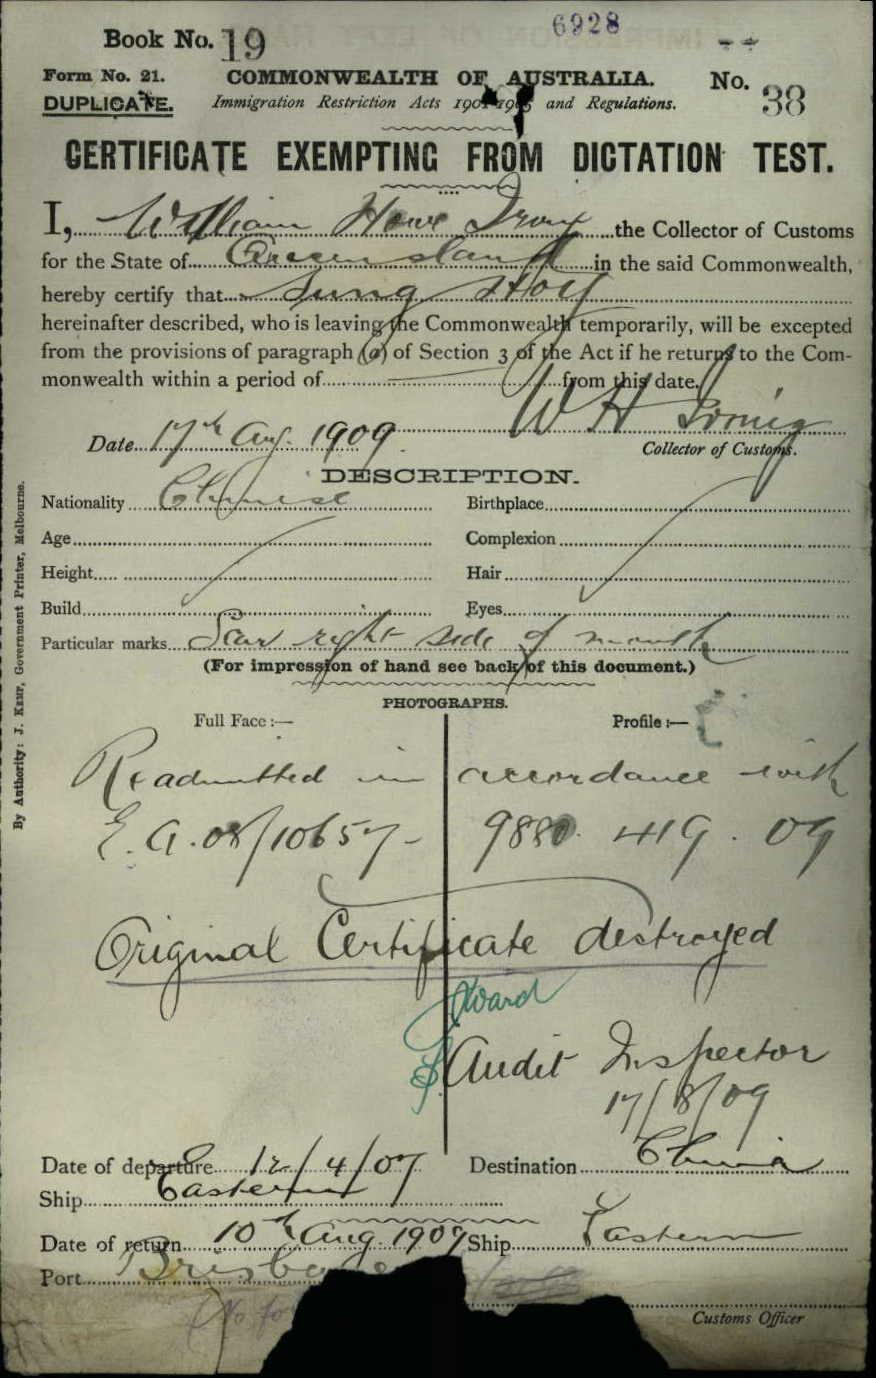 6928
Book No. 19
Form No. 21. COMMONWEALTH OF AUSTRALIA. No. 38
DUPLICATE. Immigration Restriction Acts 1901-1905 and Regulations.
CERTIFICATE EXEMPTING FROM DICTATION TEST.
I, William Howe Irving the Collector of Customs
for the State of Queensland in the said Commonwealth,
hereby certify that Sung Hoy
hereinafter described, who is leaving the Commonwealth temporarily, will be excepted
from the provisions of paragraph (a) of Section 3 of the Act if he returns to the Com-
monwealth within a period of from this date.
W H Irving
Date 17th Aug. 1909. Collector of Customs.
DESCRIPTION.
Nationality Chinese Birthplace
Age Complexion
Height Hair
Build Eyes
Particular marks Scar right side of mouth
(For impression of hand see back of this document.)
PHOTOGRAPHS.
Full Face :— Profile :—
Readmitted in accordance with
E.A. 08/10657 - 9880. 419. 09
Original Certificate destroyed
Award
Audit Inspector
17/8/09
Date of departure 12/4/07 Destination China
Ship Eastern
Date of return 10th Aug. 1909 Ship Eastern
Port Brisbane
(No
Customs Officer
By Authority: J. KEMP, Government Printer, Melbourne.